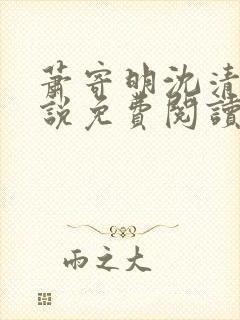 蕭寄明沈清
說免費閱讀
雨之大